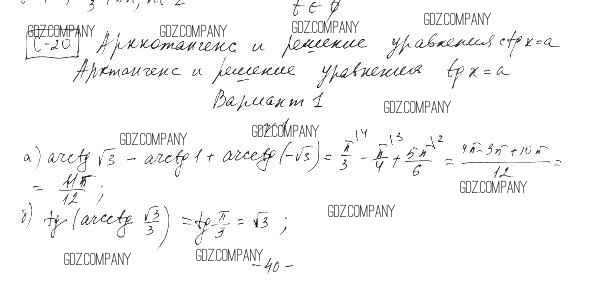 t ∈ ∅
GDZ.COMPANY GDZ.COMPANY GDZ.COMPANY GDZ.COMPANY
С-20 Арккотангенс и решение уравнения ctg x = a
Арктангенс и решение уравнения tg x = a
Вариант 1
GDZ.COMPANY
GDZ.COMPANY GDZ.COMPANY
а) arctg √3 - arctg 1 + arcctg (-√3) = π/3 - π/4 + 5π/6 = (4π - 3π + 10π)/12 =
= 11π/12;
GDZ.COMPANY
б) tg (arcctg √3/3) = tg π/3 = √3;
GDZ.COMPANY
GDZ.COMPANY GDZ.COMPANY
- 40 -